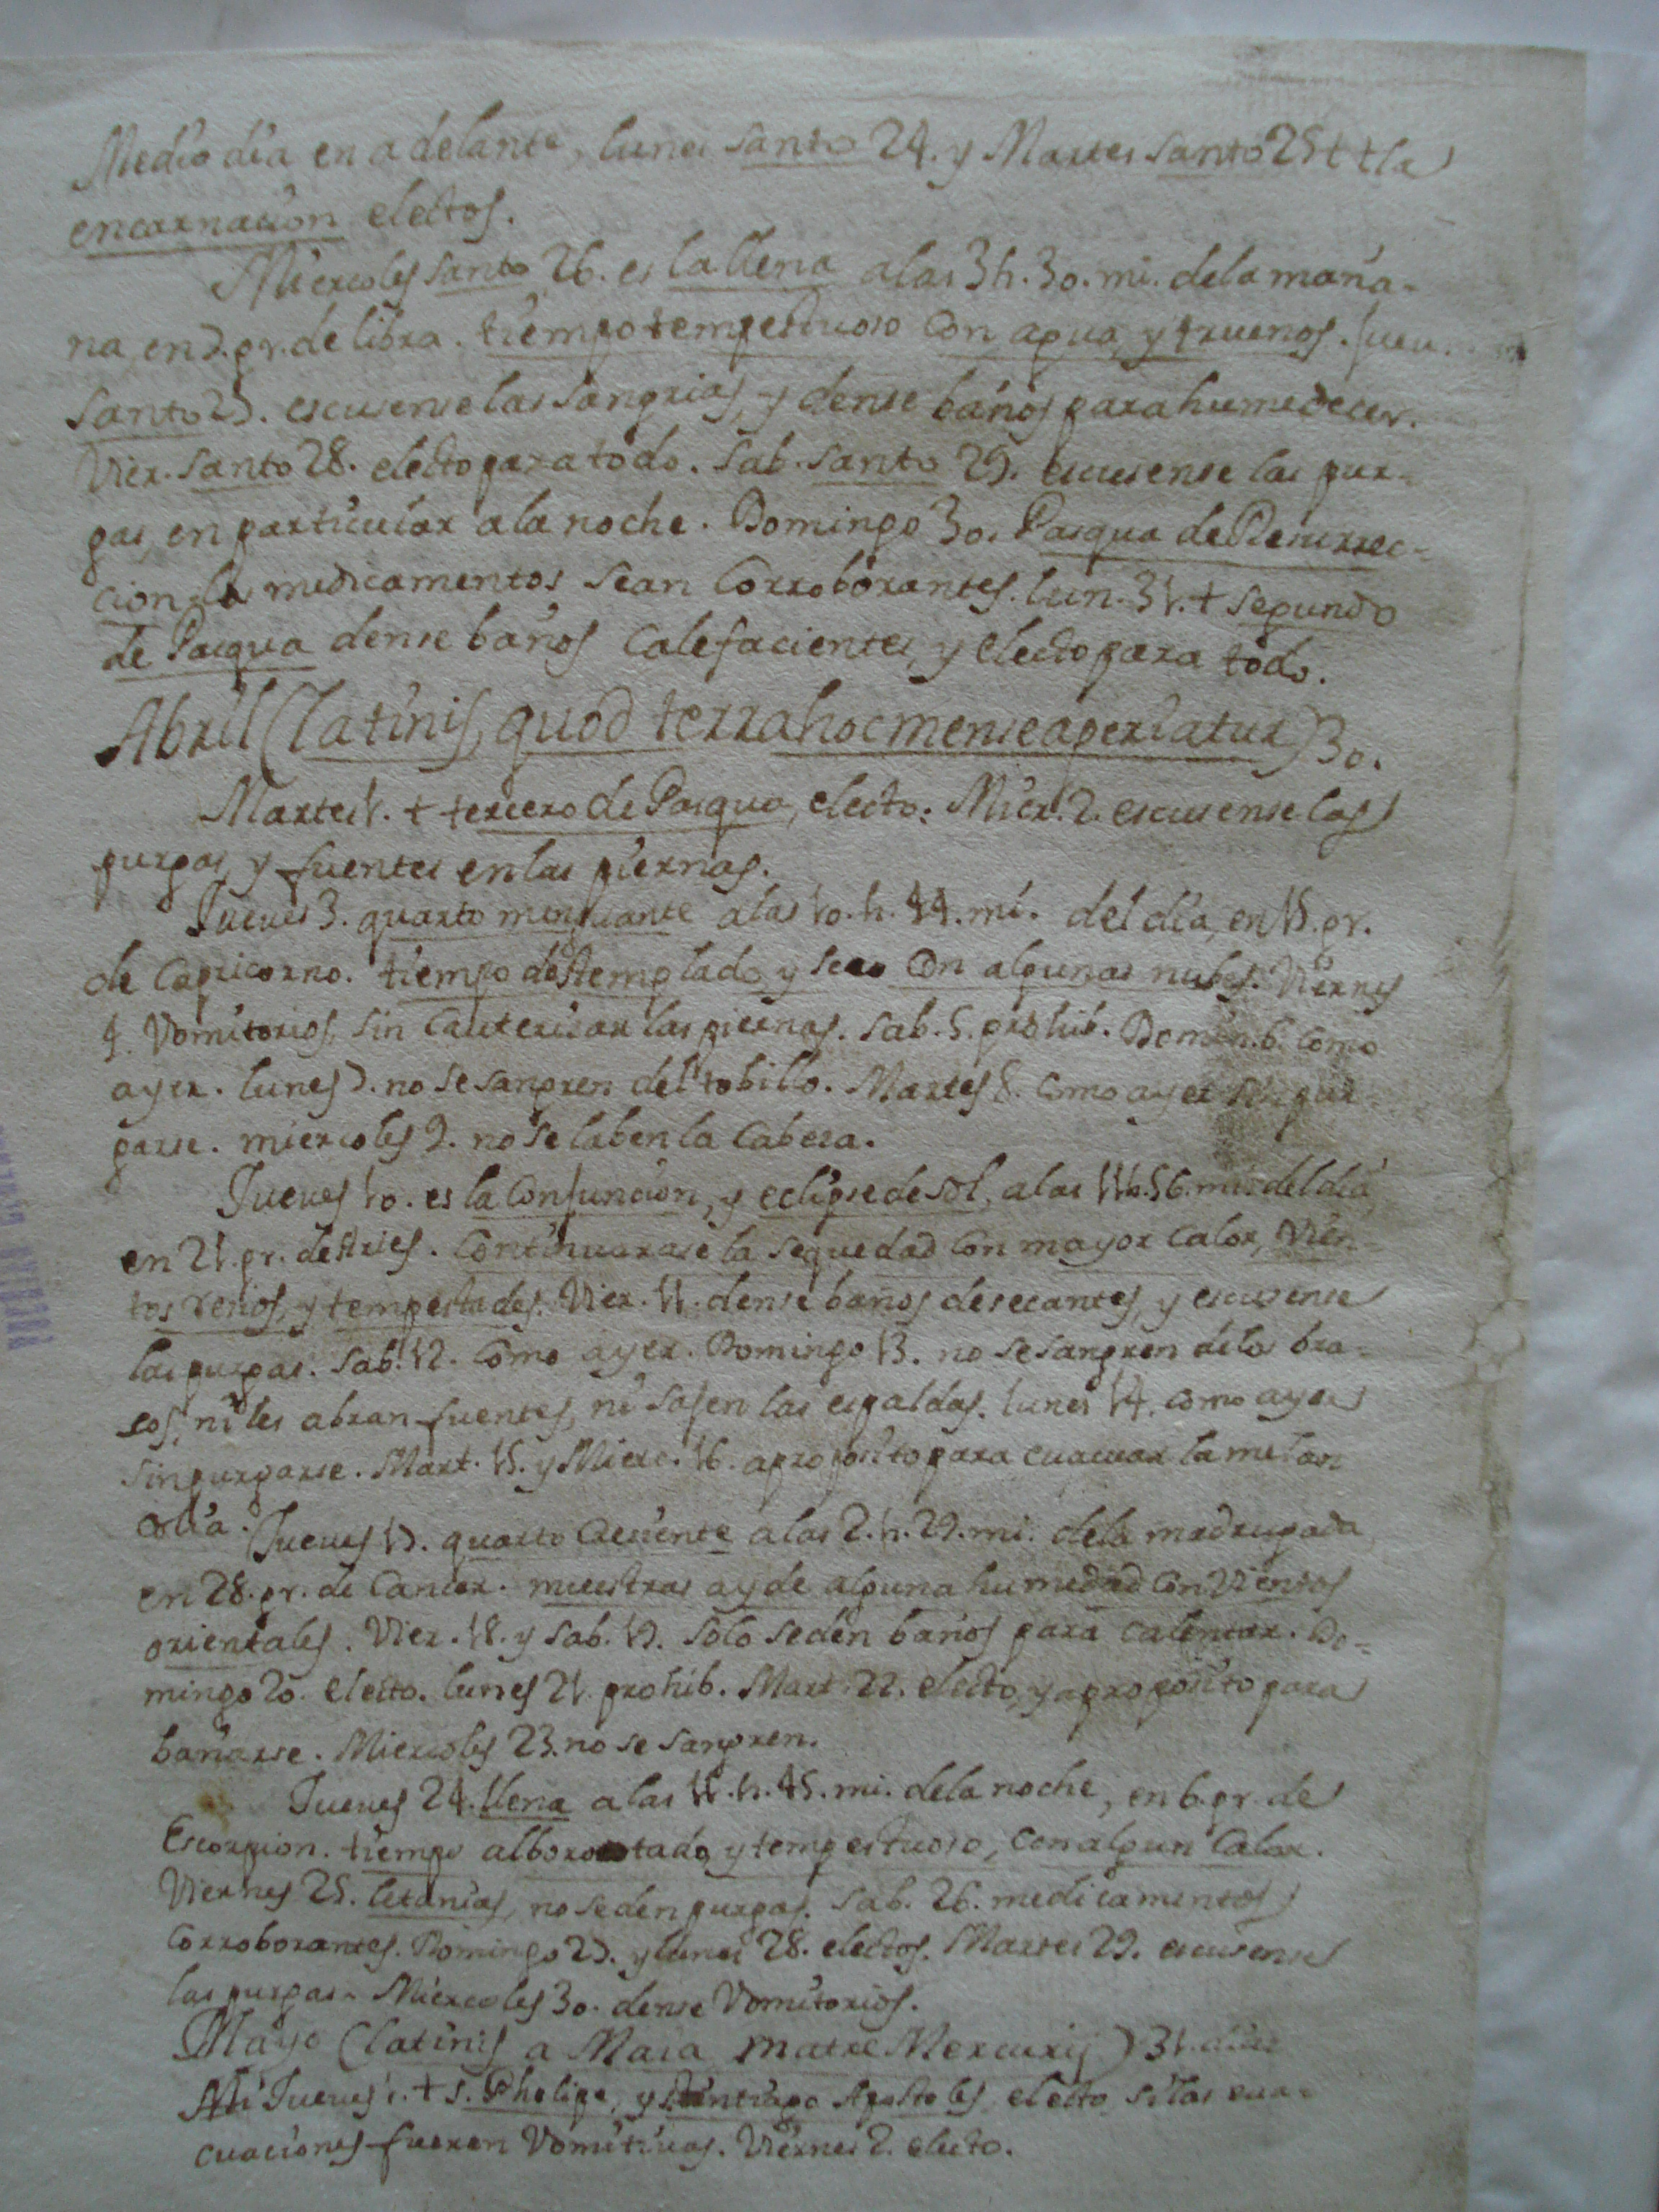 Medio dia en adelante, lunes santo 24. y Martes santo 25 + + la
encarnacion electos.
Miercoles santo 26. es la llena a las 3 h. 30. mi. de la maña-
na, en 7. gr. de libra. tiempo tempestuoso con agua, y truenos. Juev.
Santo 27. escusense las sangrias, y dense baños para humedecer.
Vier. santo 28. electo para todo. Sab. santo 29. escusense las pur-
gas, en particular a la noche. Domingo 30. Pasqua de Resurrec-
cion, los medicamentos sean corroborantes. lun. 31. + segundo
de Pasqua dense baños calefacientes, y electo para todo.
Abril (latinis, quod terra hoc mense aperiatur) 30.
Martes 1. + tercero de Pasqua, electo. Mier. 2. escusense las
purgas, y fuentes en las piernas.
Jueves 3. quarto menguante a las 10. h. 44. mi. del dia, en 15. gr.
de Capricorno. tiempo destemplado, y seco con algunas nubes. Viernes
4. Vomitorios, sin cauterizar las piernas. Sab. 5. prohib. Domin. 6. como
ayer. lunes 7. no se sangren del tobillo. Martes 8. como ayer sin pur-
garse. miercoles 9. no se laben la cabeza.
Jueves 10. es la conjuncion, y eclipse de sol, a las 11 h. 56. mi. del dia,
en 21. gr. de Aries. continuarase la sequedad con mayor calor, vien-
tos recios, y tempestades. Vier. 11. dense baños desecantes, y escusense
las purgas. Sab. 12. como ayer. Domingo 13. no se sangren de los bra-
zos, ni les abran fuentes, ni sajen las espaldas. lunes 14. como ayer
sin purgarse. Mart. 15. y Mierc. 16. aproposito para euacuar la melan
colia. Jueves 17. quarto creciente a las 2. h. 29. mi. de la madrugada
en 28. gr. de Cancer. muestras ay de alguna humedad con vientos
orientales. Vier. 18. y sab. 19. solo se den baños para calentar. Do-
mingo 20. electo. lunes 21. prohib. Mart. 22. electo, y aproposito para
bañarse. Miercoles 23. no se sangren.
Jueves 24. llena a las 11. h. 45. mi. de la noche, en 6. gr. de
Escorpion. tiempo alborotado, y tempestuoso, con algun calor.
Viernes 25. letanias, no se den purgas. Sab. 26. medicamentos
corroborantes. Domingo 27. y lunes 28. electos. Martes 29. escusense
las purgas. Miercoles 30. dense Vomitorios.
Mayo (latinis a Maia matre Mercurij) 31. dias
Jueves 1. + S. Phelipe, y Santiago Apostoles, electo si las eua-
cuaciones fueren Vomitivas. Viernes 2. electo.